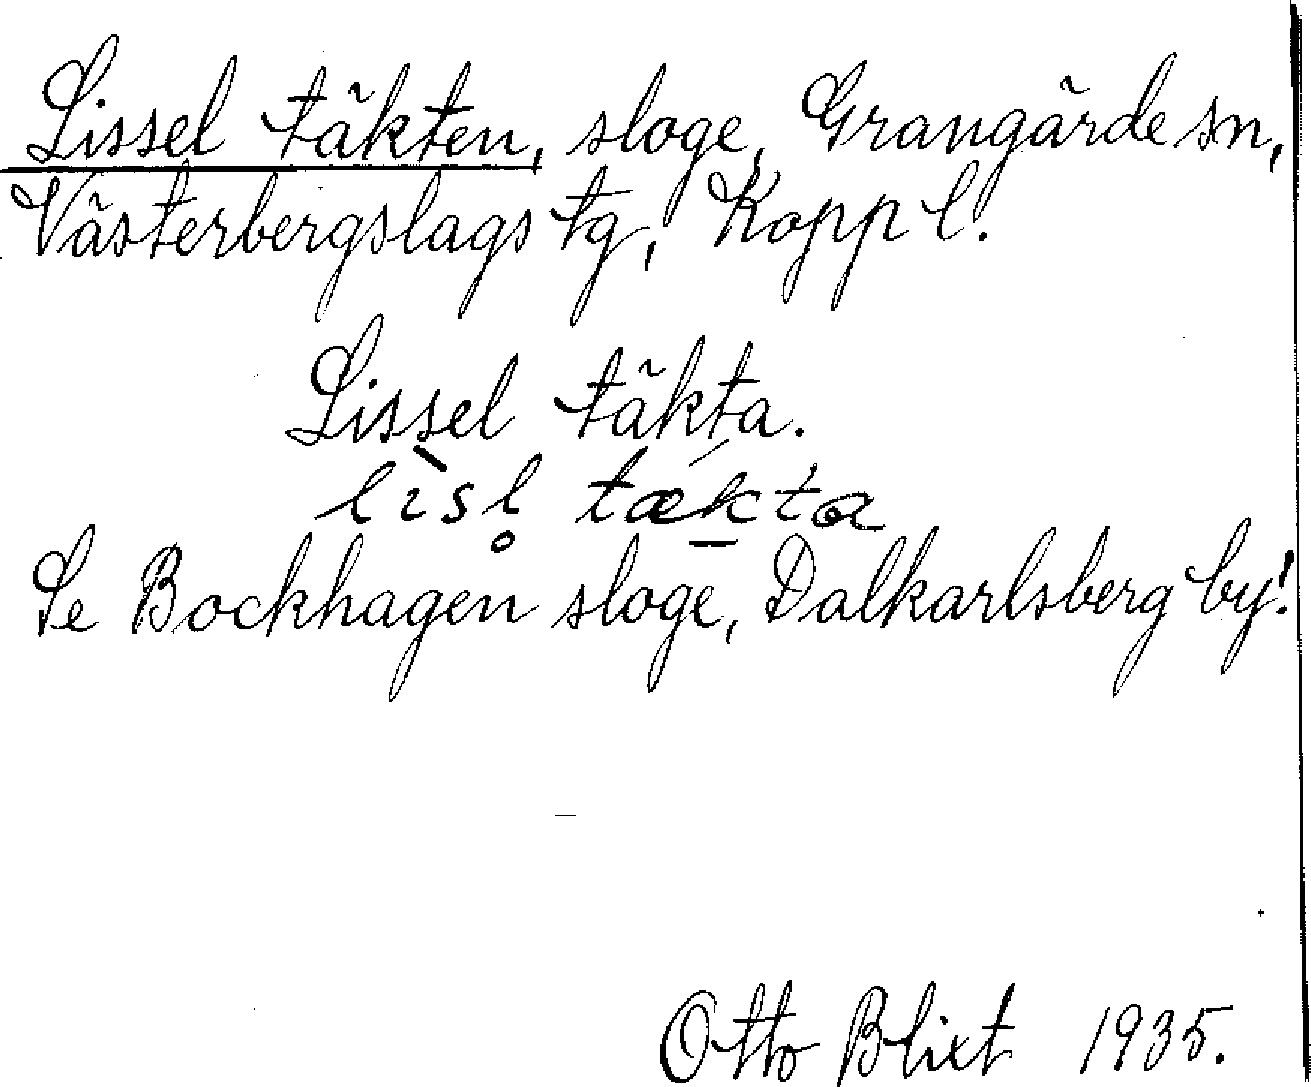 Lissel täkten, sloge, Grangärde sn,
Västerbergslags tg, Kopp l.
Lissel täkta.
lìsl̥ tækta
Se Bockhagen sloge, Dalkarlsberg by!
Otto Blixt 1935.